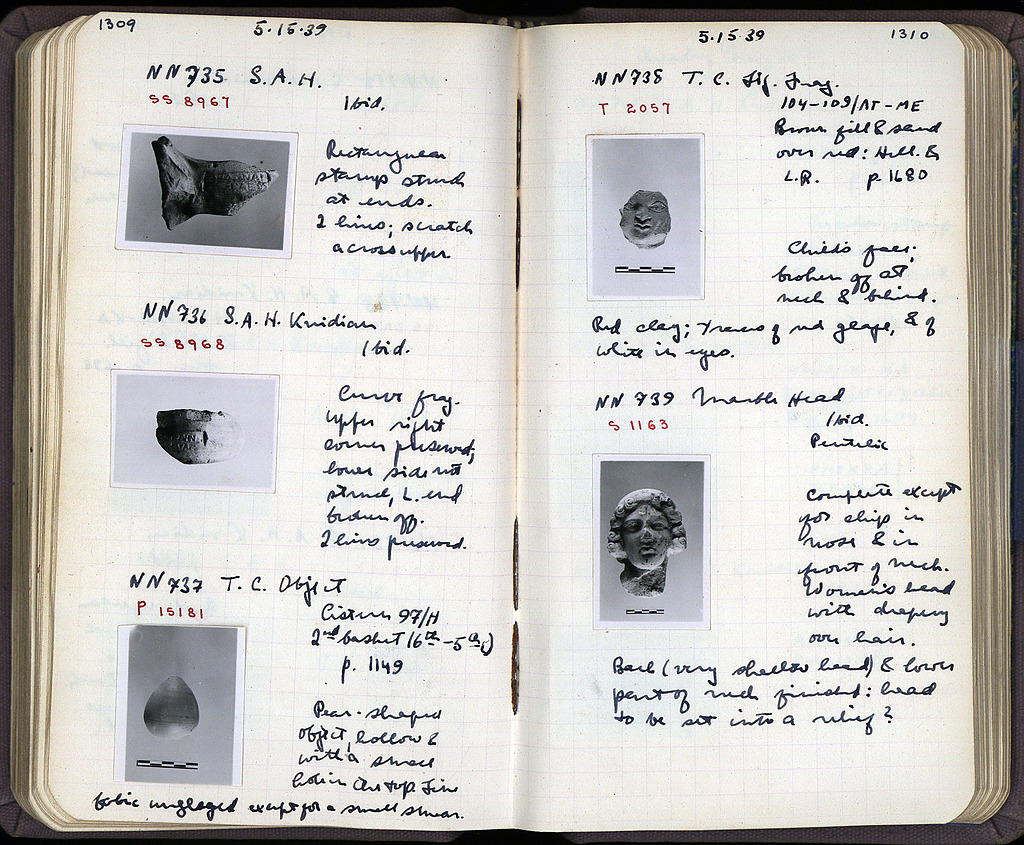 1309
5·15·39
NN 735 S.A.H.
SS 8967
Ibid.
Rectangular
stamp struck
at ends.
2 lines; scratch
across upper
NN 736 S.A.H. Knidian
SS 8968
Ibid.
Curve frag.
upper right
corner preserved;
lower side not
struck, L. end
broken off.
2 lines preserved.
NN 737 T.C. Object
P 15181
Cistern 97/H
2nd basket (6th-5th c)
p. 1149
Pear-shaped
object, hollow &
with a small
hole in the top. Fine
fabric unglazed except for a small smear.
1310
5·15·39
NN 738 T.C. Fig. Frag.
T 2057
104-109/AT-ME
Brown fill & sand
over red: Hell. &
L.R. p. 1680
Child's face;
broken off at
neck & behind.
Red clay; traces of red glaze, & of
white in eyes.
NN 739 Marble Head
S 1163
Ibid.
Pentelic
Complete except
for chip in
nose & in
front of neck.
Women's head
with drapery
over hair.
Back (very shallow head) & lower
part of neck finished: head
to be set into a relief?